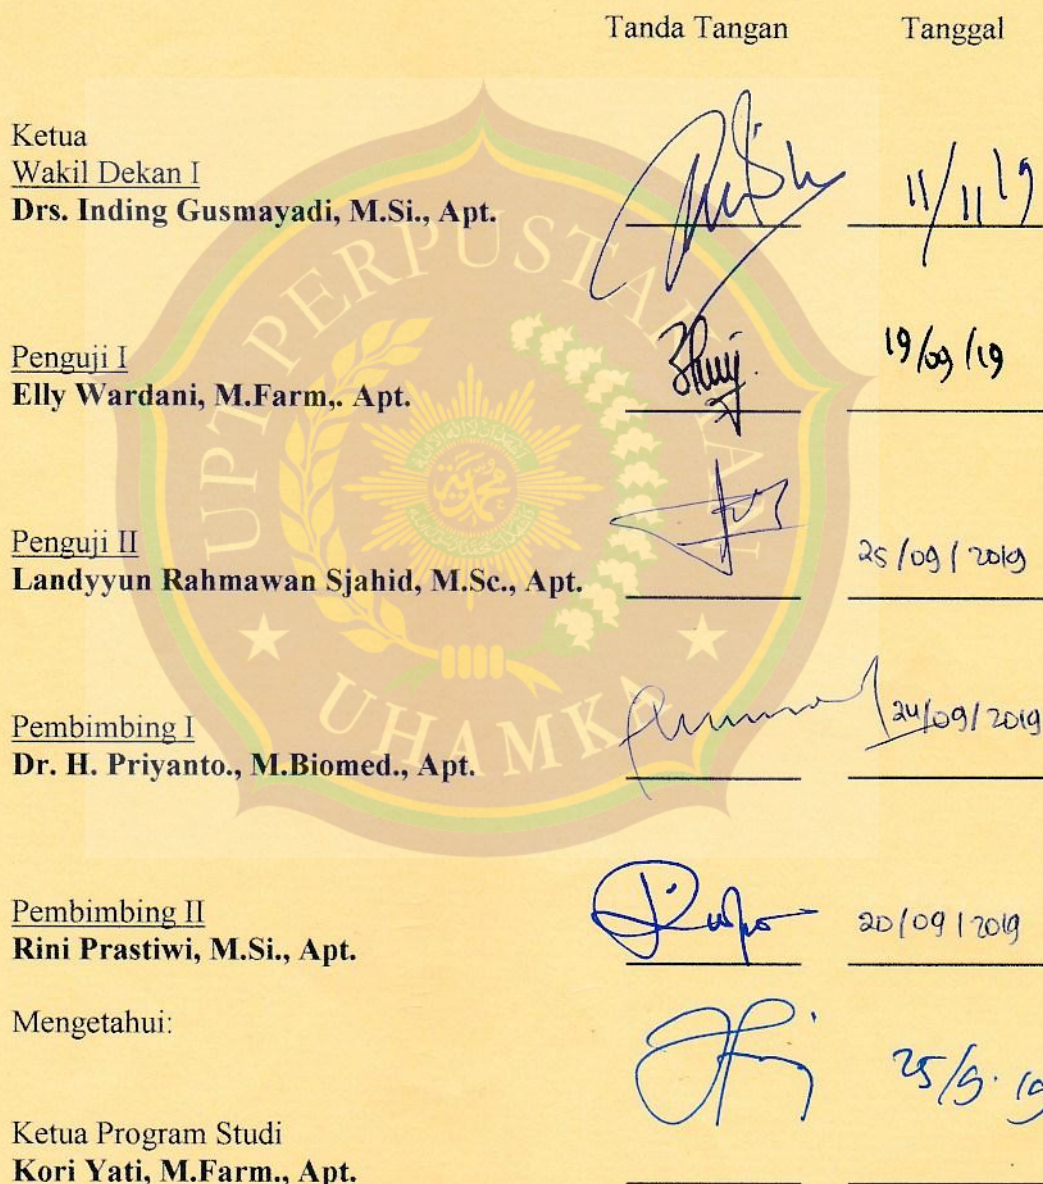 Tanda Tangan Tanggal
Ketua
Wakil Dekan I
Drs. Inding Gusmayadi, M.Si., Apt.
11/11 19
Penguji I
Elly Wardani, M.Farm,. Apt.
19/09/19
Penguji II
Landyyun Rahmawan Sjahid, M.Sc., Apt.
25/09/2019
Pembimbing I
Dr. H. Priyanto., M.Biomed., Apt.
24/09/2019
Pembimbing II
Rini Prastiwi, M.Si., Apt.
20/09/2019
Mengetahui:
25/9. 19
Ketua Program Studi
Kori Yati, M.Farm., Apt.
UPT PERPUSTAKAAN
UHAMKA